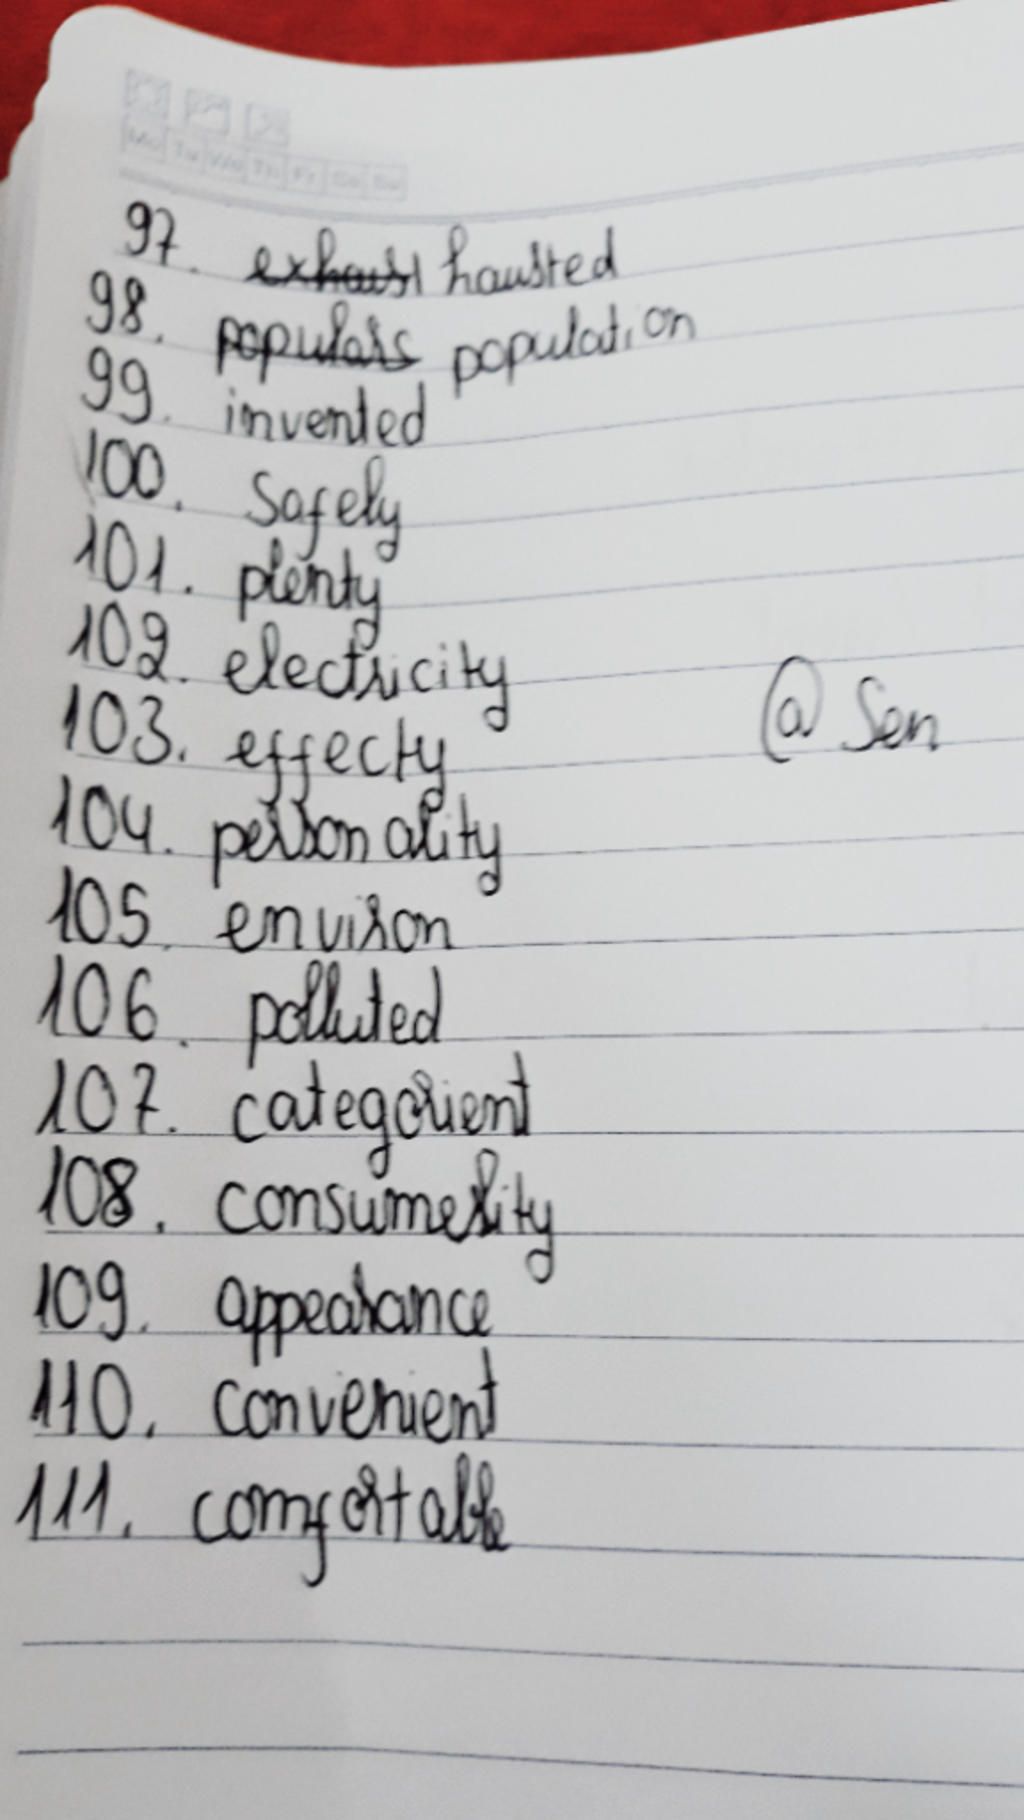 Mo Tu We Th Fr Sa Su
97. exhaust hausted
98. populars population
99. invented
100. Safely
101. plenty
102. electricity
103. effecty
104. personality
105. environ
@ Sen
106. polluted
107. categorient
108. consumerity
109. appearance
110. convenient
111. comfortable